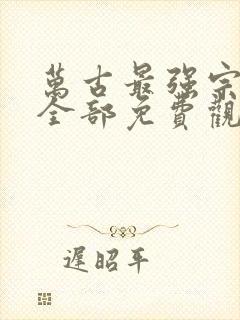 萬古最强宗
全部免費觀
遲昭平